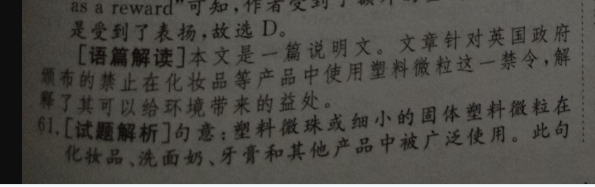 as a reward"可知,作者受到了
是受到了表扬,故选 D。
[语篇解读]本文是一篇说明文。文章针对英国政府
颁布的禁止在化妆品等产品中使用塑料微粒这一禁令,解
释了其可以给环境带来的益处。
61.[试题解析]句意:塑料微珠或细小的固体塑料微粒在
化妆品、洗面奶、牙膏和其他产品中被广泛使用。此句